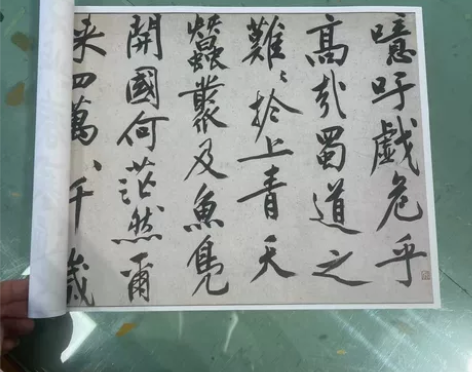 噫吁戲危乎
高哉蜀道之
難〻於上青天
蠶叢及魚鳧
開國何茫然爾
来四萬八千歲